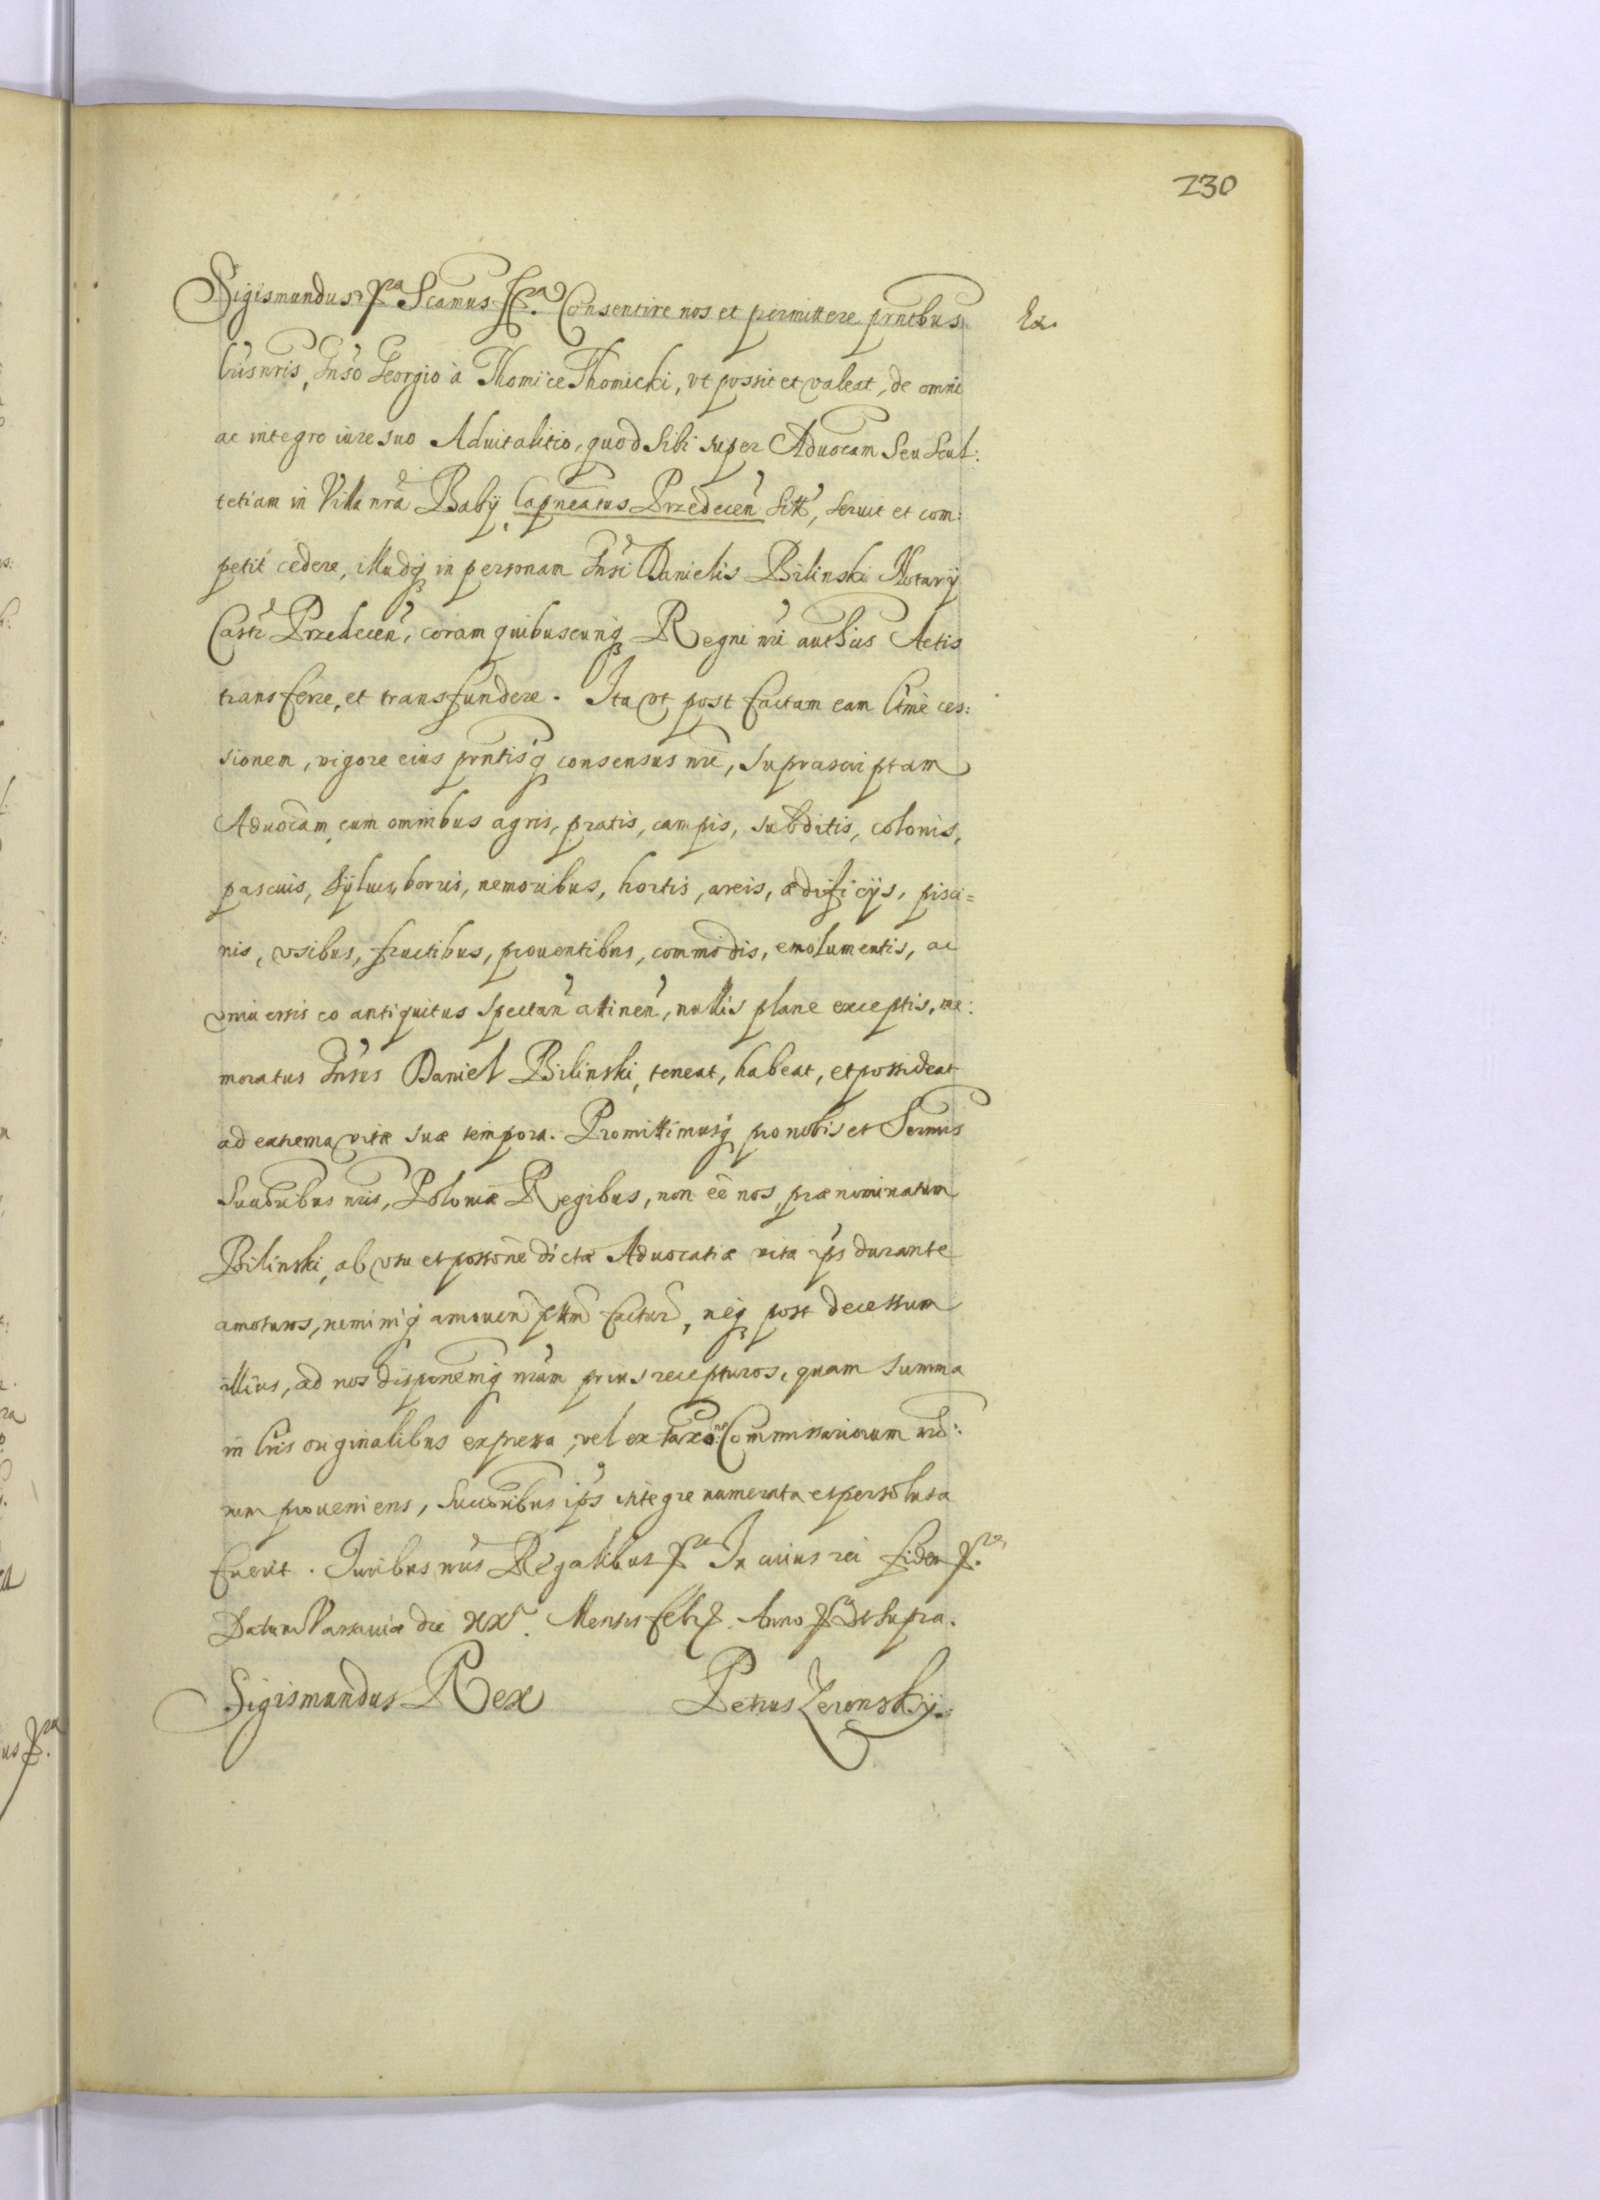 230
Sigismundus &ra Scamus &ra Consentire nos et permittere prntbus Ex.
lris nris, Gnso Georgio à Thomice Thomicki, vt possit et valeat, de omni
ac integro iure suo Aduitalitio, quod sibi super Aduocam seu Scul:
tetiam in Villa nra Baby Capneatus Przedecen sitt, seruit et com:
petit cedere, illudq in personam Gnsi Danielis Bilinski Notarij
Castr Przedecen, coram quibuscunq Regni nri authcis Actis
transferre, et transfundere. Ita vt post factam eam ltime ces:
sionem, vigore eius prntisq consensus nri, suprascriptam
Aduocam cum omnibus agris, pratis, campis, subditis, colonis,
pascuis, syluis, borris, nemoribus, hortis, areis, ædificijs, pisci=
nis, vsibus, fructibus, prouentibus, commodis, emolumentis, ac
vniuersis eo antiquitus spectan attinen, nullis plane exceptis, me:
moratus Gnsus Daniel Bilinski, teneat, habeat, et possideat
ad extrema vitæ suæ tempora. Promittimusq pro nobis et Sermis
Succoribus nris, Poloniæ Regibus, non ee nos, prænominatum
Bilinski, ab vsu et possone dictæ Aduocatiæ vita ips durante
amoturos, neminiq amouen pttm factur, neq post decessum
illius, ad nos disponemq nram prius recepturos, quam summa
in lris originalibus expressa, vel ex taxone Commissariorum nro:
rum proueniens, succoribus ips integre numerata et persoluta
fuerit. Iuribus nris Regalibus &ra In cuius rei fidem &ra
Datum Varsauiæ die XX. Mensis Febr. Anno & vt supra.
Sigismundus Rex Petrus Zeronskij